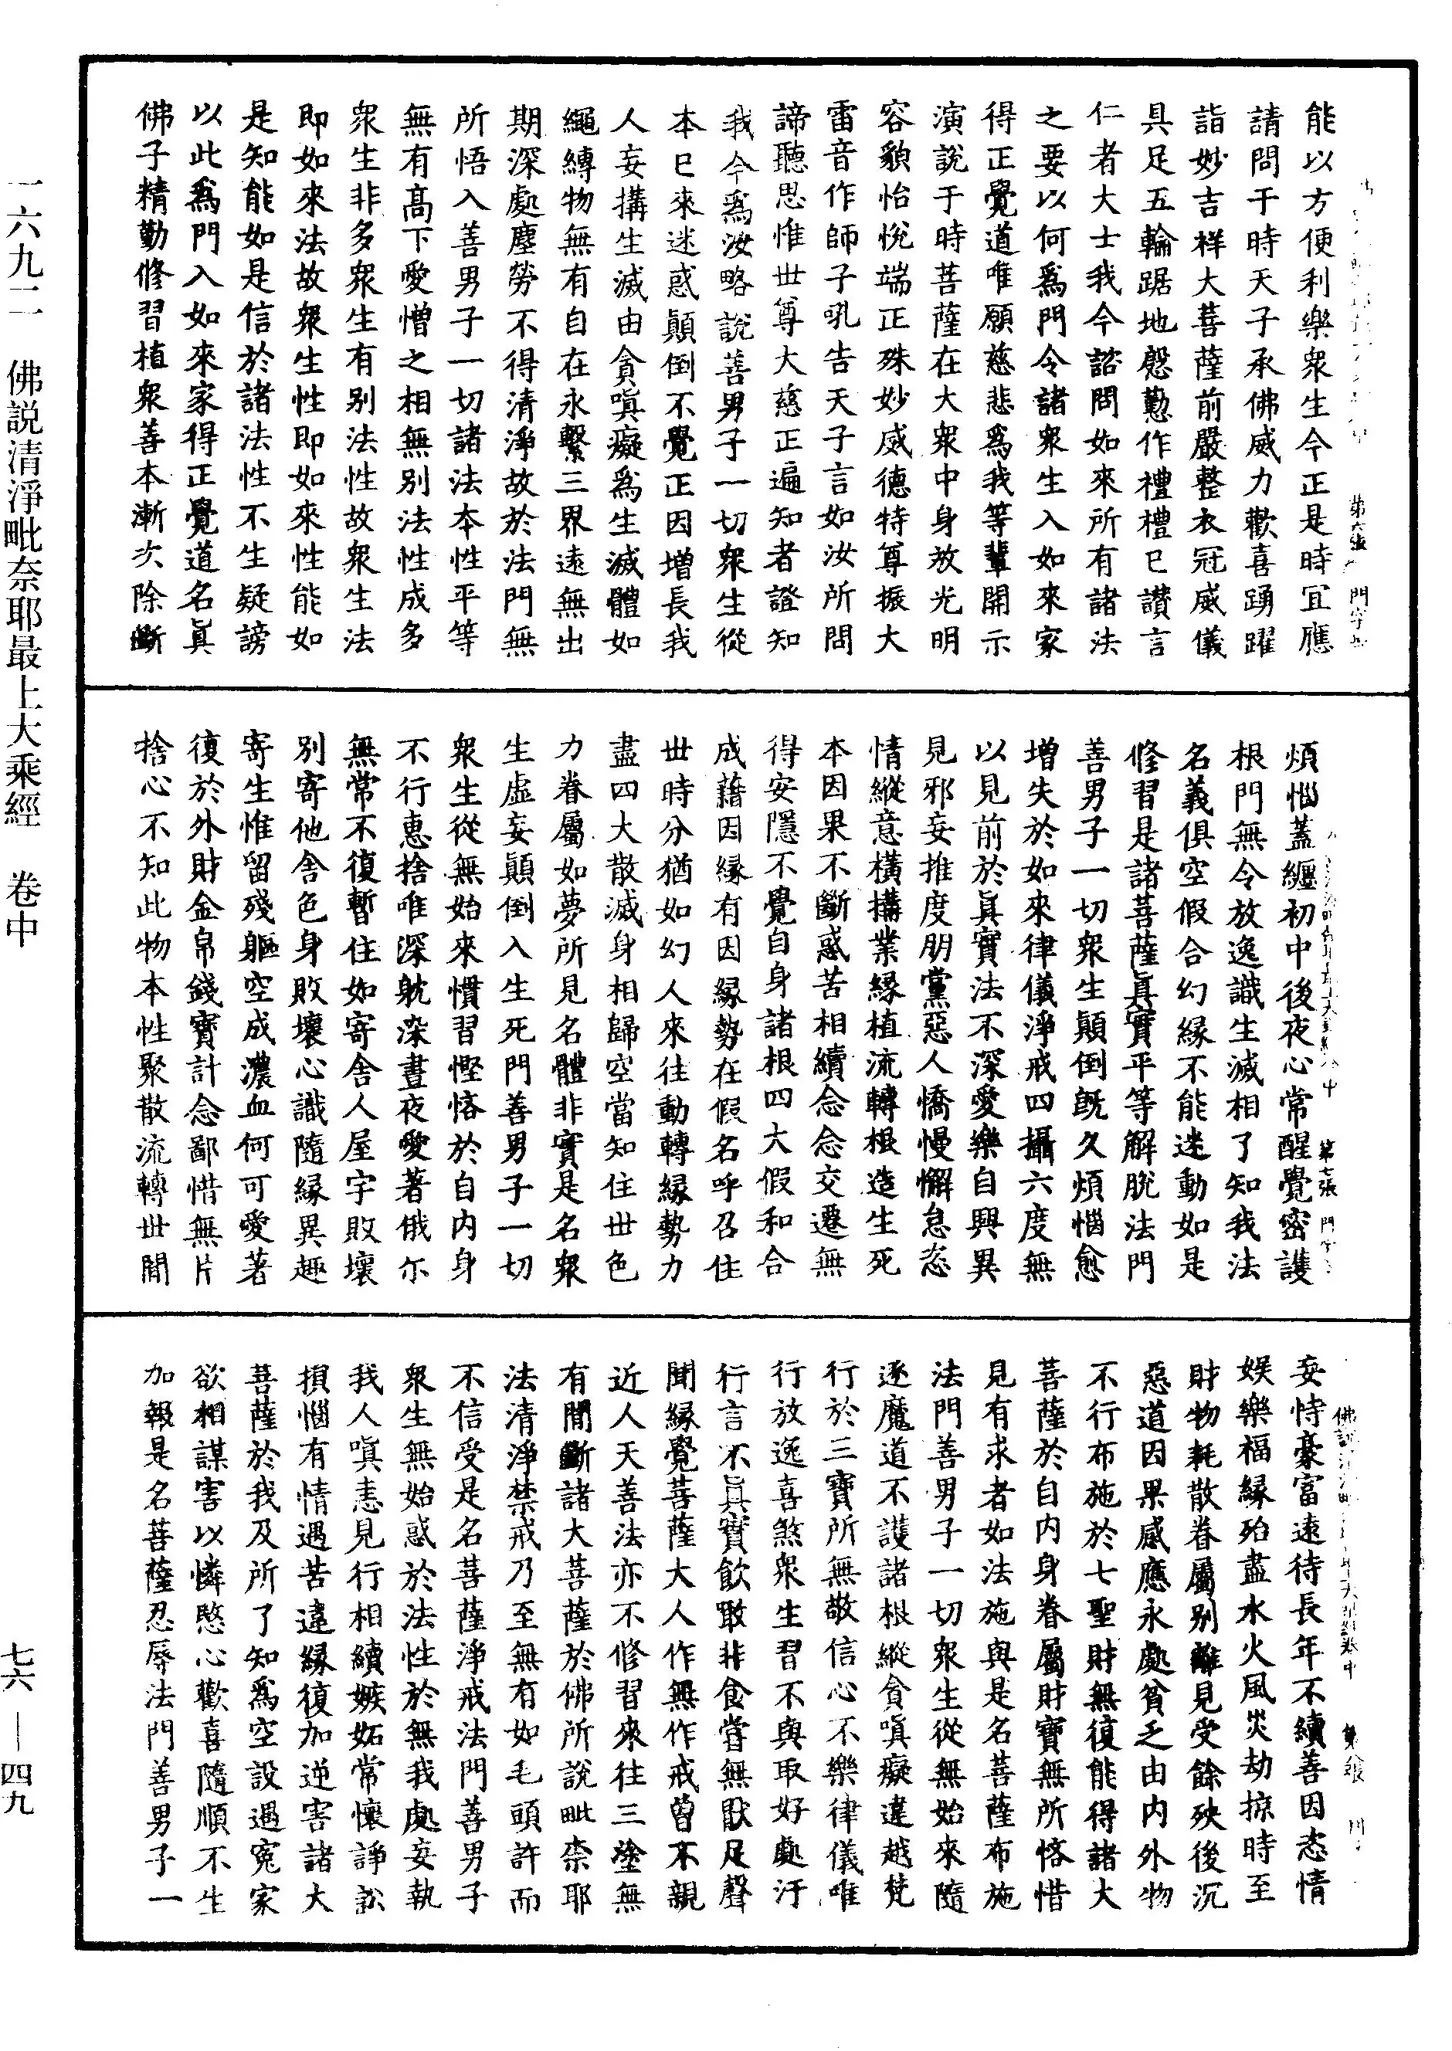 能以方便利樂衆生今正是時宜應
請問于時天子承佛威力歡喜踴躍
詣妙吉祥大菩薩前嚴整衣冠威儀
具足五輪踞地慇懃作禮禮已讃言
仁者大士我今諮問如來所有諸法
之要以何爲門令諸衆生入如來家
得正覺道唯願慈悲爲我等輩開示
演說于時菩薩在大衆中身放光明
容貌怡悅端正殊妙威德特尊振大
雷音作師子吼告天子言如汝所問
諦聽思惟世尊大慈正遍知者證知
我今爲汝略説善男子一切衆生從
本已來迷惑顛倒不覺正因增長我
人妄搆生滅由貪嗔癡爲生滅體如
繩縛物無有自在永繫三界遠無出
期深處塵勞不得清淨故於法門無
所悟入善男子一切諸法本性平等
無有高下愛憎之相無別法性成多
衆生非多衆生有別法性故衆生法
即如來法故衆生性即如來性能如
是知能如是信於諸法性不生疑謗
以此爲門入如來家得正覺道名眞
佛子精勤修習植衆善本漸次除斷
煩惱蓋纏初中後夜心常醒覺密護
根門無令放逸識生滅相了知我法
名義俱空假合幻緣不能迷動如是
修習是諸菩薩眞實平等解脫法門
善男子一切衆生顛倒旣久煩惱愈
增失於如來律儀淨戒四攝六度無
以見前於眞實法不深愛樂自興異
見邪妄推度朋黨惡人憍慢懈怠恣
情縱意橫搆業緣植流轉根造生死
本因果不斷惑苦相續念念交遷無
得安隱不覺自身諸根四大假和合
成藉因緣有因緣勢在假名呼召住
世時分猶如幻人來往動轉緣勢力
盡四大散滅身相歸空當知住世色
力眷屬如夢所見名體非實是名衆
生虛妄顛倒入生死門善男子一切
衆生從無始來慣習慳悋於自内身
不行惠捨唯深躭染晝夜愛著俄尓
無常不復暫住如寄舍人屋宇敗壞
別寄他舍色身敗壞心識隨緣異趣
寄生惟留殘軀空成濃血何可愛著
復於外財金帛錢寶計念鄙惜無片
捨心不知此物本性聚散流轉世間
妄恃豪富遠待長年不續善因恣情
娛樂福緣殆盡水火風災劫掠時至
財物耗散眷屬別離見受餘殃後沉
惡道因果感應永處貧乏由内外物
不行布施於七聖財無復能得諸大
菩薩於自内身眷屬財寶無所悋惜
見有求者如法施與是名菩薩布施
法門善男子一切衆生從無始來隨
逐魔道不護諸根縱貪嗔癡違越梵
行於三寶所無敬信心不樂律儀唯
行放逸喜煞衆生習不與取好處汙
行言不眞實飲噉非食嘗無猒足聲
聞緣覺菩薩大人作無作戒曾不親
近人天善法亦不修習來往三塗無
有間斷諸大菩薩於佛所說毗柰耶
法清淨禁戒乃至無有如毛頭許而
不信受是名菩薩淨戒法門善男子
衆生無始惑於法性於無我處妄執
我人嗔恚見行相續嫉妬常懷諍訟
損惱有情遇苦違緣復加逆害諸大
菩薩於我及所了知爲空設遇寃家
欲相謀害以憐愍心歡喜隨順不生
加報是名菩薩忍辱法門善男子一
一六九二　佛説清淨毗奈耶最上大乘經　卷中
七六 — 四九